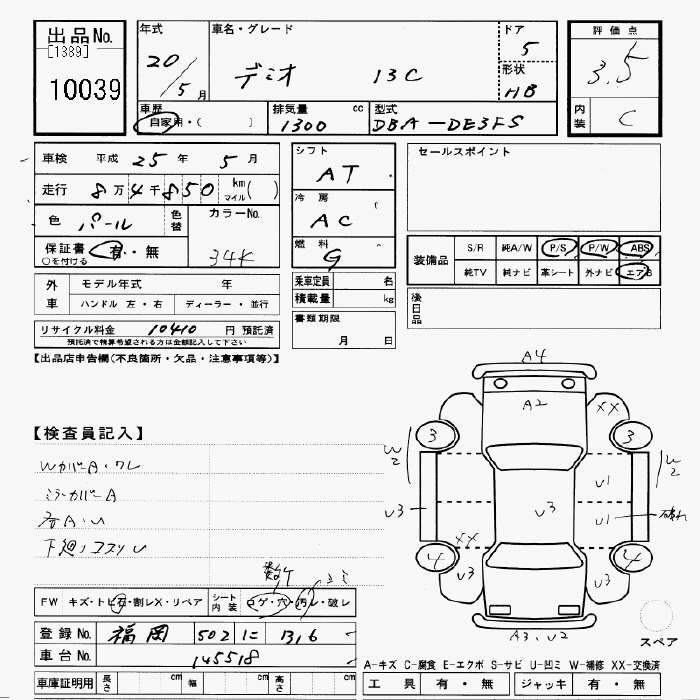 出品No.
[1389]
10039
年式
20/5月
車名・グレード
デミオ 13C
ドア
5
形状
HB
評価点
3.5
内装
C
車歴
自家用・( )
排気量 cc
1300
型式
DBA-DE3FS
車検 平成 25 年 5 月
走行 8万4千850 km マイル( )
色 パール
色替
カラーNo.
34K
保証書 有・無
○を付ける
シフト
AT
冷房
AC
燃料
G
セールスポイント
装備品
S/R 純A/W P/S P/W ABS
純TV 純ナビ 革シート 外ナビ エアB
外車
モデル年式 年
ハンドル 左・右 ディーラー・並行
乗車定員 名
積載量 kg
書類期限
月 日
後日品
リサイクル料金 10410 円 預託済
預託済で精算希望される方は金額記入して下さい
【出品店申告欄(不良箇所・欠品・注意事項等)】
【検査員記入】
WカバーA・ワレ
ミラーカバーA
各A・U
下廻りコスリU
A4
A2
XX
3
3
W2
W2
U3
U3
U1
U1
破れ
XX
4
4
U3
U3
A3、U2
スペア
FW キズ・トビ石・割レX・リペア
シート内装
コゲ・穴・汚レ・破レ
登録No. 福岡 502 に 1316
車台No. 145518
車庫証明用 長さ cm 幅 cm 高さ cm
A-キズ C-腐食 E-エクボ S-サビ U-凹ミ W-補修 XX-交換済
工具 有・無 ジャッキ 有・無